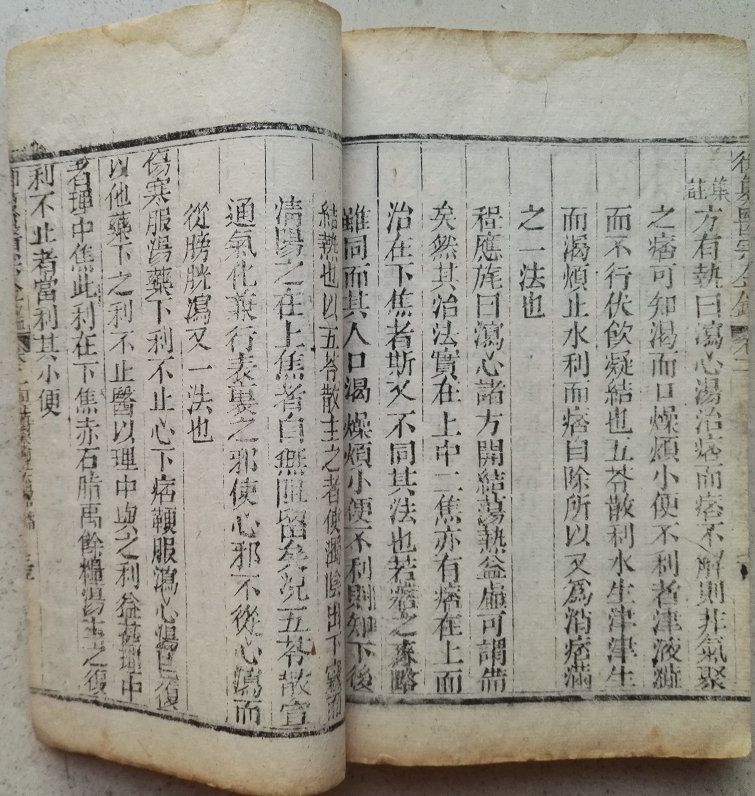 御纂醫宗金鑑 卷
集註
方有執曰瀉心湯治痞而痞不解則非氣聚
之痞可知渴而口燥煩小便不利者津液澁
而不行伏飲凝結也五苓散利水生津津生
而渴煩止水利而痞自除所以又爲消痞滿
之一法也
程應旄曰瀉心諸方開結蕩熱益虛可謂備
矣然其治法實在上中二焦亦有痞在上而
治在下焦者斯又不同其法也若痞之來路
雖同而其人口渴燥煩小便不利則知下後
結熱也以五苓散主之者使濁陰出下竅而
清陽之在上焦者自無阻留矣況五苓散宣
通氣化兼行表裏之邪使心邪不從心瀉而
從膀胱瀉又一法也
傷寒服湯藥下利不止心下痞鞕服瀉心湯已復
以他藥下之利不止醫以理中與之利益甚理中
者理中焦此利在下焦赤石脂禹餘糧湯主之復
利不止者當利其小便
御纂醫宗金鑑 卷